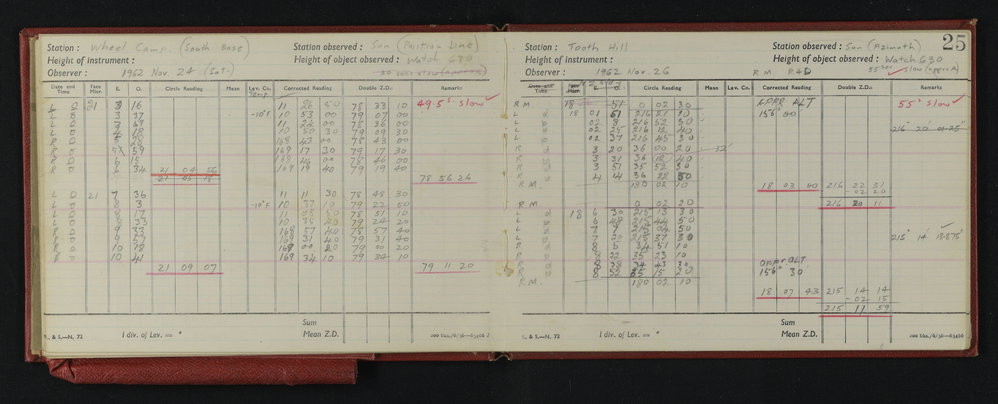 Station : Wheel Camp. (South Base) Station observed : Sun (Position Line)
Height of instrument : Height of object observed : Watch G30
Observer : 1962 Nov. 24 (Sat)
Date and Time Face Micr. E. O. Circle Reading Mean Lev. Cn. Corrected Reading Double Z.D.: Remarks
L O 21 3 16 11 26 50 78 33 10 49.5s slow
L O 3 37 -10°F 10 53 00 79 07 00
L O 11 24 00 78 36 00
L O 4 18 10 50 30 79 09 30
R O 168 43 00 78 43 00
R O 59 169 17 30 79 17 30
R O 6 15 168 46 00 78 46 00
R O 6 34 21 04 56 169 19 40 79 19 40
78 56 26
L O 21 7 36 11 11 30 78 48 30
L O 8 3 -10°F 10 37 10 79 22 50
L O 8 17 11 08 50 78 51 10
L O 8 33 10 35 40 79 24 20
R O 9 33 168 57 40 78 57 40
R O 169 31 40 79 31 40
R O 10 18 169 00 20 79 00 20
R O 10 41 169 34 10 79 34 10
21 09 07 79 11 20
Sum
B. & S.—N. 72 1 div. of Lev. = " Mean Z.D.
25
Station : Tooth Hill Station observed : Sun (Azimuth)
Height of instrument : Height of object observed : Watch G30
Observer : 1962 Nov. 26 R M R4D 55 sec slow (approx)
Date and Time Face Micr. E. O. Circle Reading Mean Lev. Cn. Corrected Reading Double Z.D.: Remarks
RM 18 51 0 02 30 APPR ALT 55s slow
L 18 01 51 216 51 10 156° 00
L 02 8 216 52 50
L 02 25 216 12 40
L 02 37 216 45 30
R 3 20 36 00 20
R 3 31 36 18 40
R 3 51 35 52 30
R 4 14 36 22 50
RM. 180 02 10 18 03 00 216 22 31
02 20
RM 0 02 20 216 20 11
L 18 6 30 215 13 30
L 6 48 215 44 50
L 7 7 215 04 50
L 7 20 215 37 30
R 8 34 51 10
R 8 22 35 23 10
R 8 38 34 43 30 appr ALT
R 8 52 35 15 20 156° 30
RM. 180 02 10
18 07 43 215 14 14
-02 15
215 11 59
Sum
B. & S.—N. 72 1 div. of Lev. = " Mean Z.D.